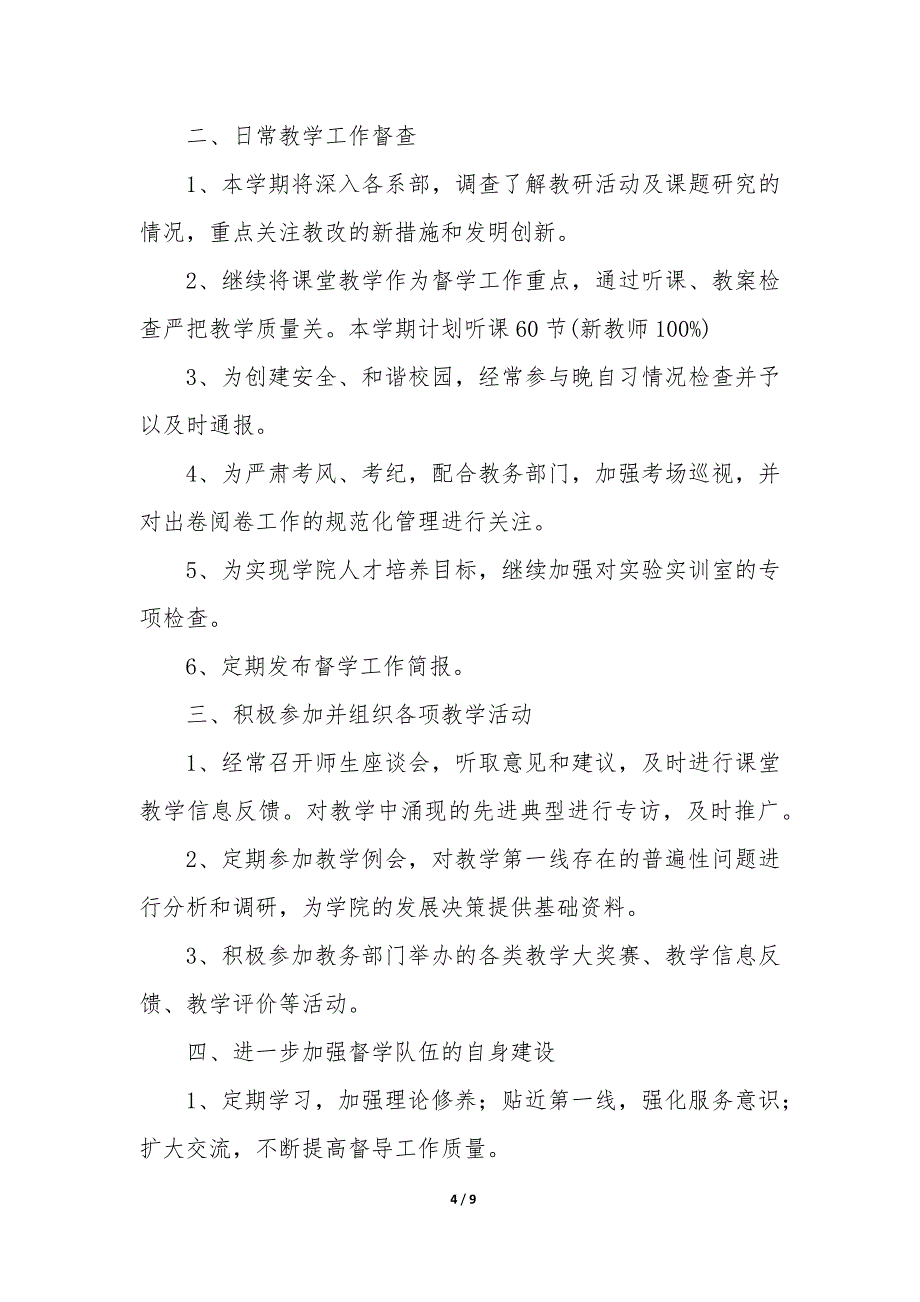 二、日常教学工作督查
1、本学期将深入各系部，调查了解教研活动及课题研究的
情况，重点关注教改的新措施和发明创新。
2、继续将课堂教学作为督学工作重点，通过听课、教案检
查严把教学质量关。本学期计划听课 60 节(新教师 100%)
3、为创建安全、和谐校园，经常参与晚自习情况检查并予
以及时通报。
4、为严肃考风、考纪，配合教务部门，加强考场巡视，并
对出卷阅卷工作的规范化管理进行关注。
5、为实现学院人才培养目标，继续加强对实验实训室的专
项检查。
6、定期发布督学工作简报。
三、积极参加并组织各项教学活动
1、经常召开师生座谈会，听取意见和建议，及时进行课堂
教学信息反馈。对教学中涌现的先进典型进行专访，及时推广。
2、定期参加教学例会，对教学第一线存在的普遍性问题进
行分析和调研，为学院的发展决策提供基础资料。
3、积极参加教务部门举办的各类教学大奖赛、教学信息反
馈、教学评价等活动。
四、进一步加强督学队伍的自身建设
1、定期学习，加强理论修养；贴近第一线，强化服务意识；
扩大交流，不断提高督导工作质量。
4 / 9